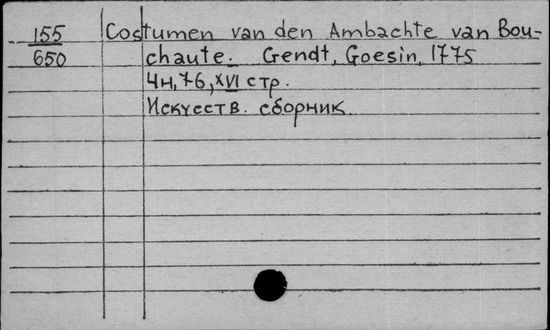 155 Costumen van den Ambachte van Bou-
650 chaute. Gendt, Goesin, 1775
4н, 76, XVI стр.
Искусств. сборник.